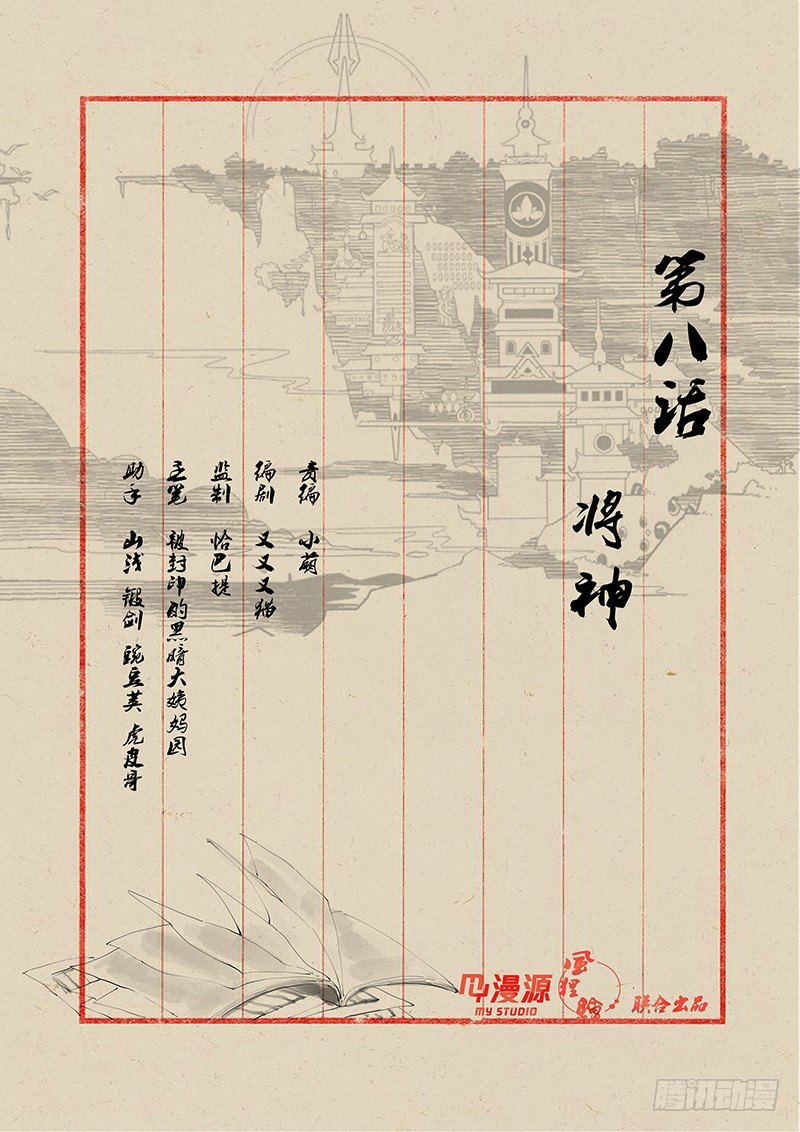 第八话
将神
责编 小萌
编剧 又又又猫
监制 恰巴提
主笔 被封印的黑暗大姨妈园
助手 山浅 锻剑 豌豆荚 虎皮哥
漫源
MY STUDIO
联合出品
腾讯动漫